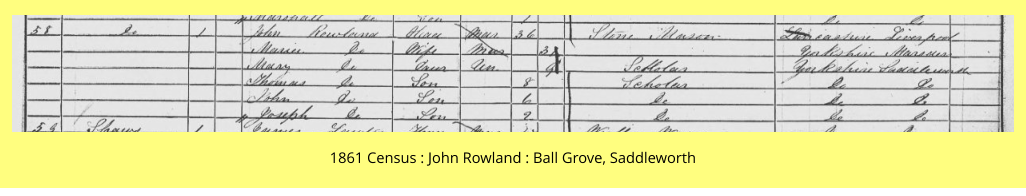 Marshall Do Son 1 Do Do
58 Do 1 John Rowland Head Mar 36 Stone Mason Lancashire Liverpool
Maria Do Wife Mar Yorkshire Marsden
Mary Do Daur Un 9 Scholar Yorkshire Saddleworth
Thomas Do Son 8 Scholar Do Do
John Do Son 6 Do Do Do
Joseph Do Son 2 Do Do Do
59 Shaws 1 James
1861 Census : John Rowland : Ball Grove, Saddleworth